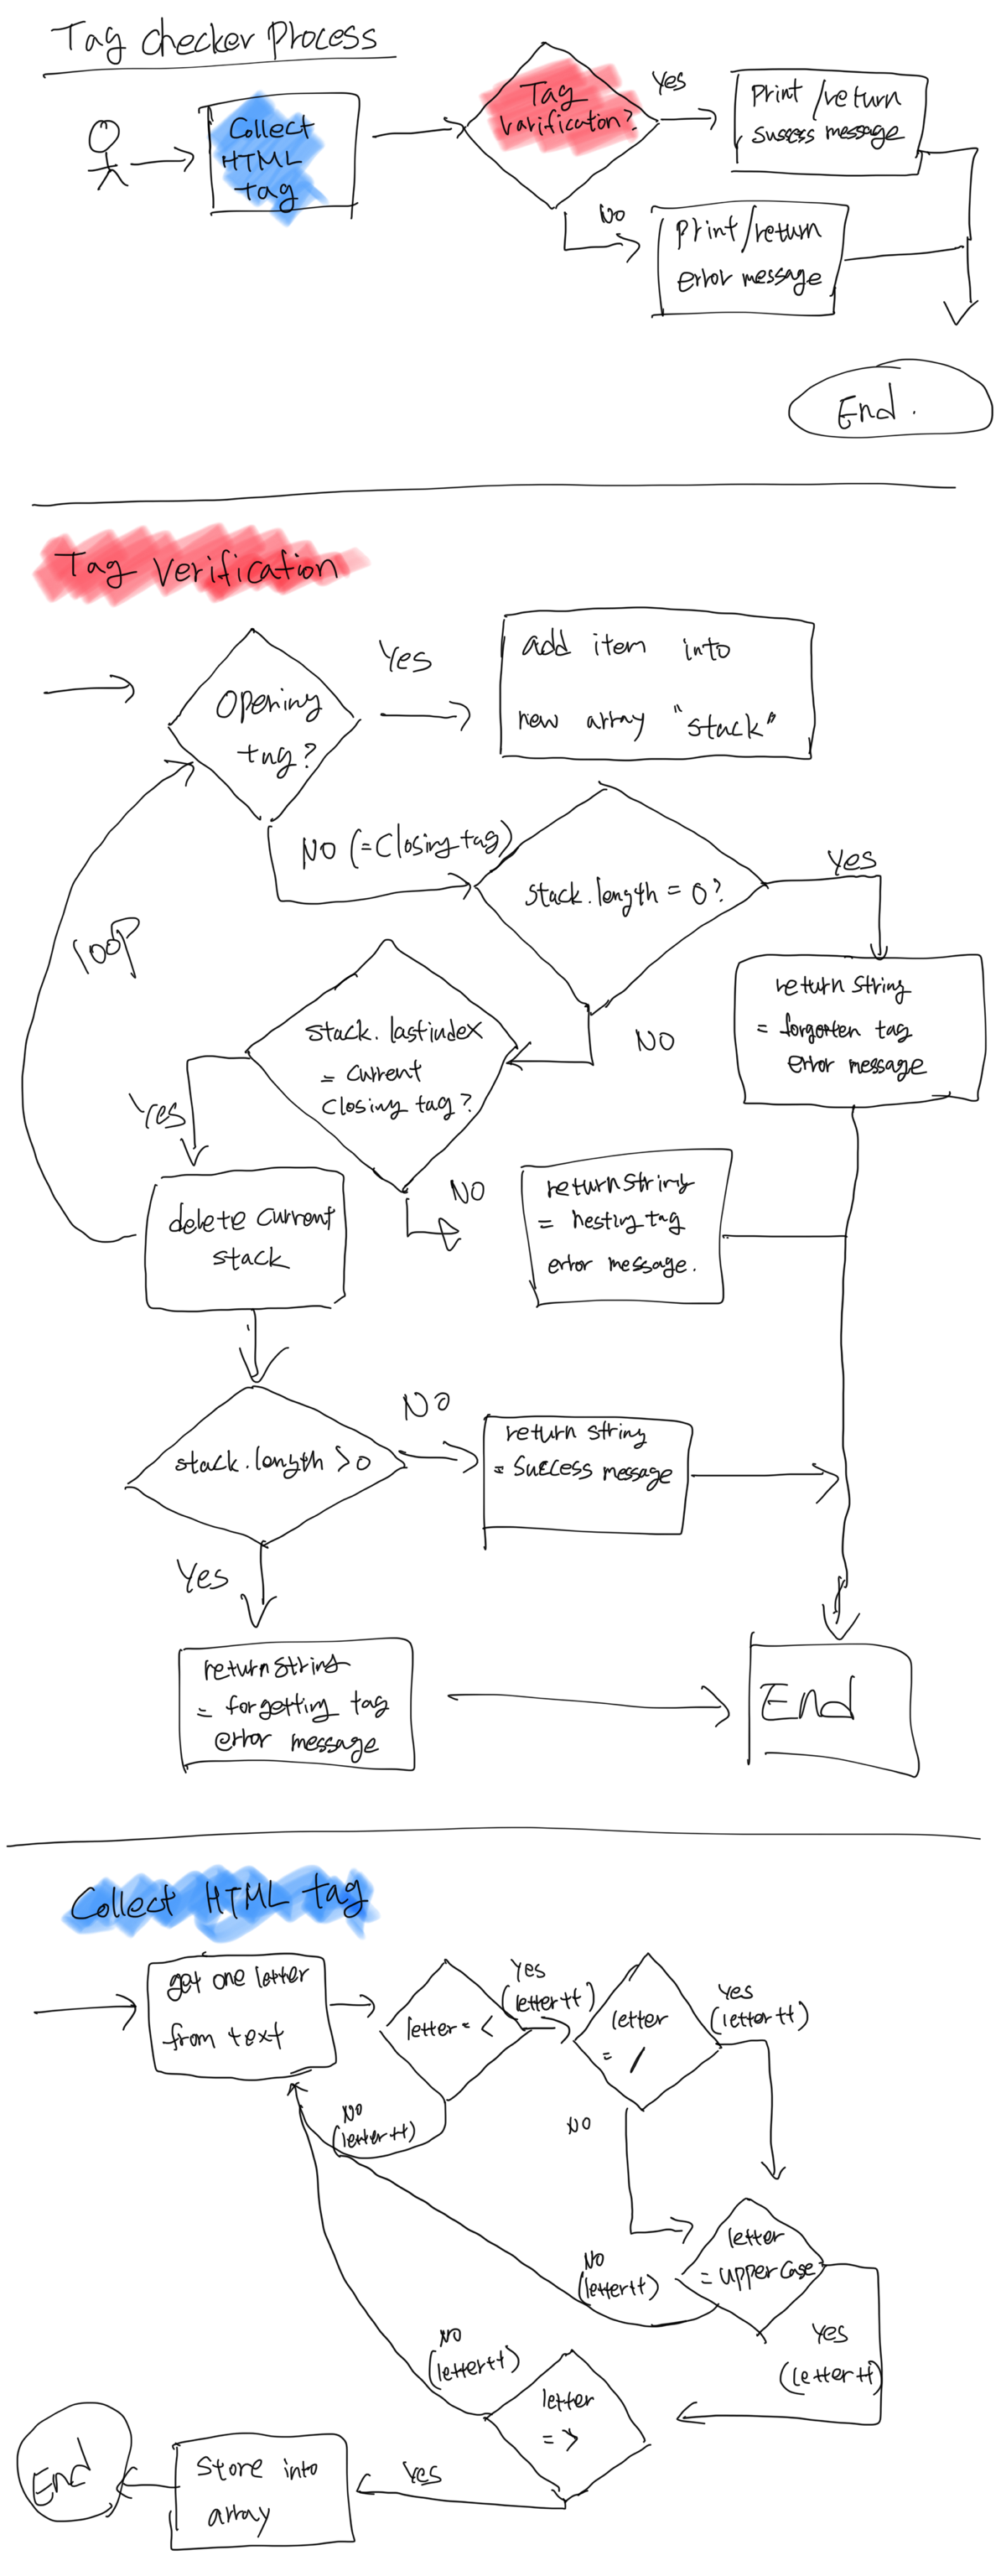 Tag checker Process
Collect
HTML
tag
Tag
varification?
Yes
Print /return
Sussess message
No
Print/return
error message
End.
Tag Verification
Opening
tag?
Yes
add item into
new array "stack"
NO (=Closing tag)
stack.length = 0?
Yes
return string
= forgotten tag
error message
loop
NO
stack.lastindex
= current
closing tag?
Yes
NO
delete current
stack
return string
= nesting tag
error message.
stack.length >0
NO
return string
= Success message
Yes
return string
= forgetting tag
error message
End
Collect HTML tag
get one letter
from text
letter = <
Yes
(letter++)
letter
= /
Yes
(letter++)
NO
(letter++)
NO
letter
= upperCase
NO
(letter++)
Yes
(letter++)
NO
(letter++)
letter
= >
Yes
Store into
array
End